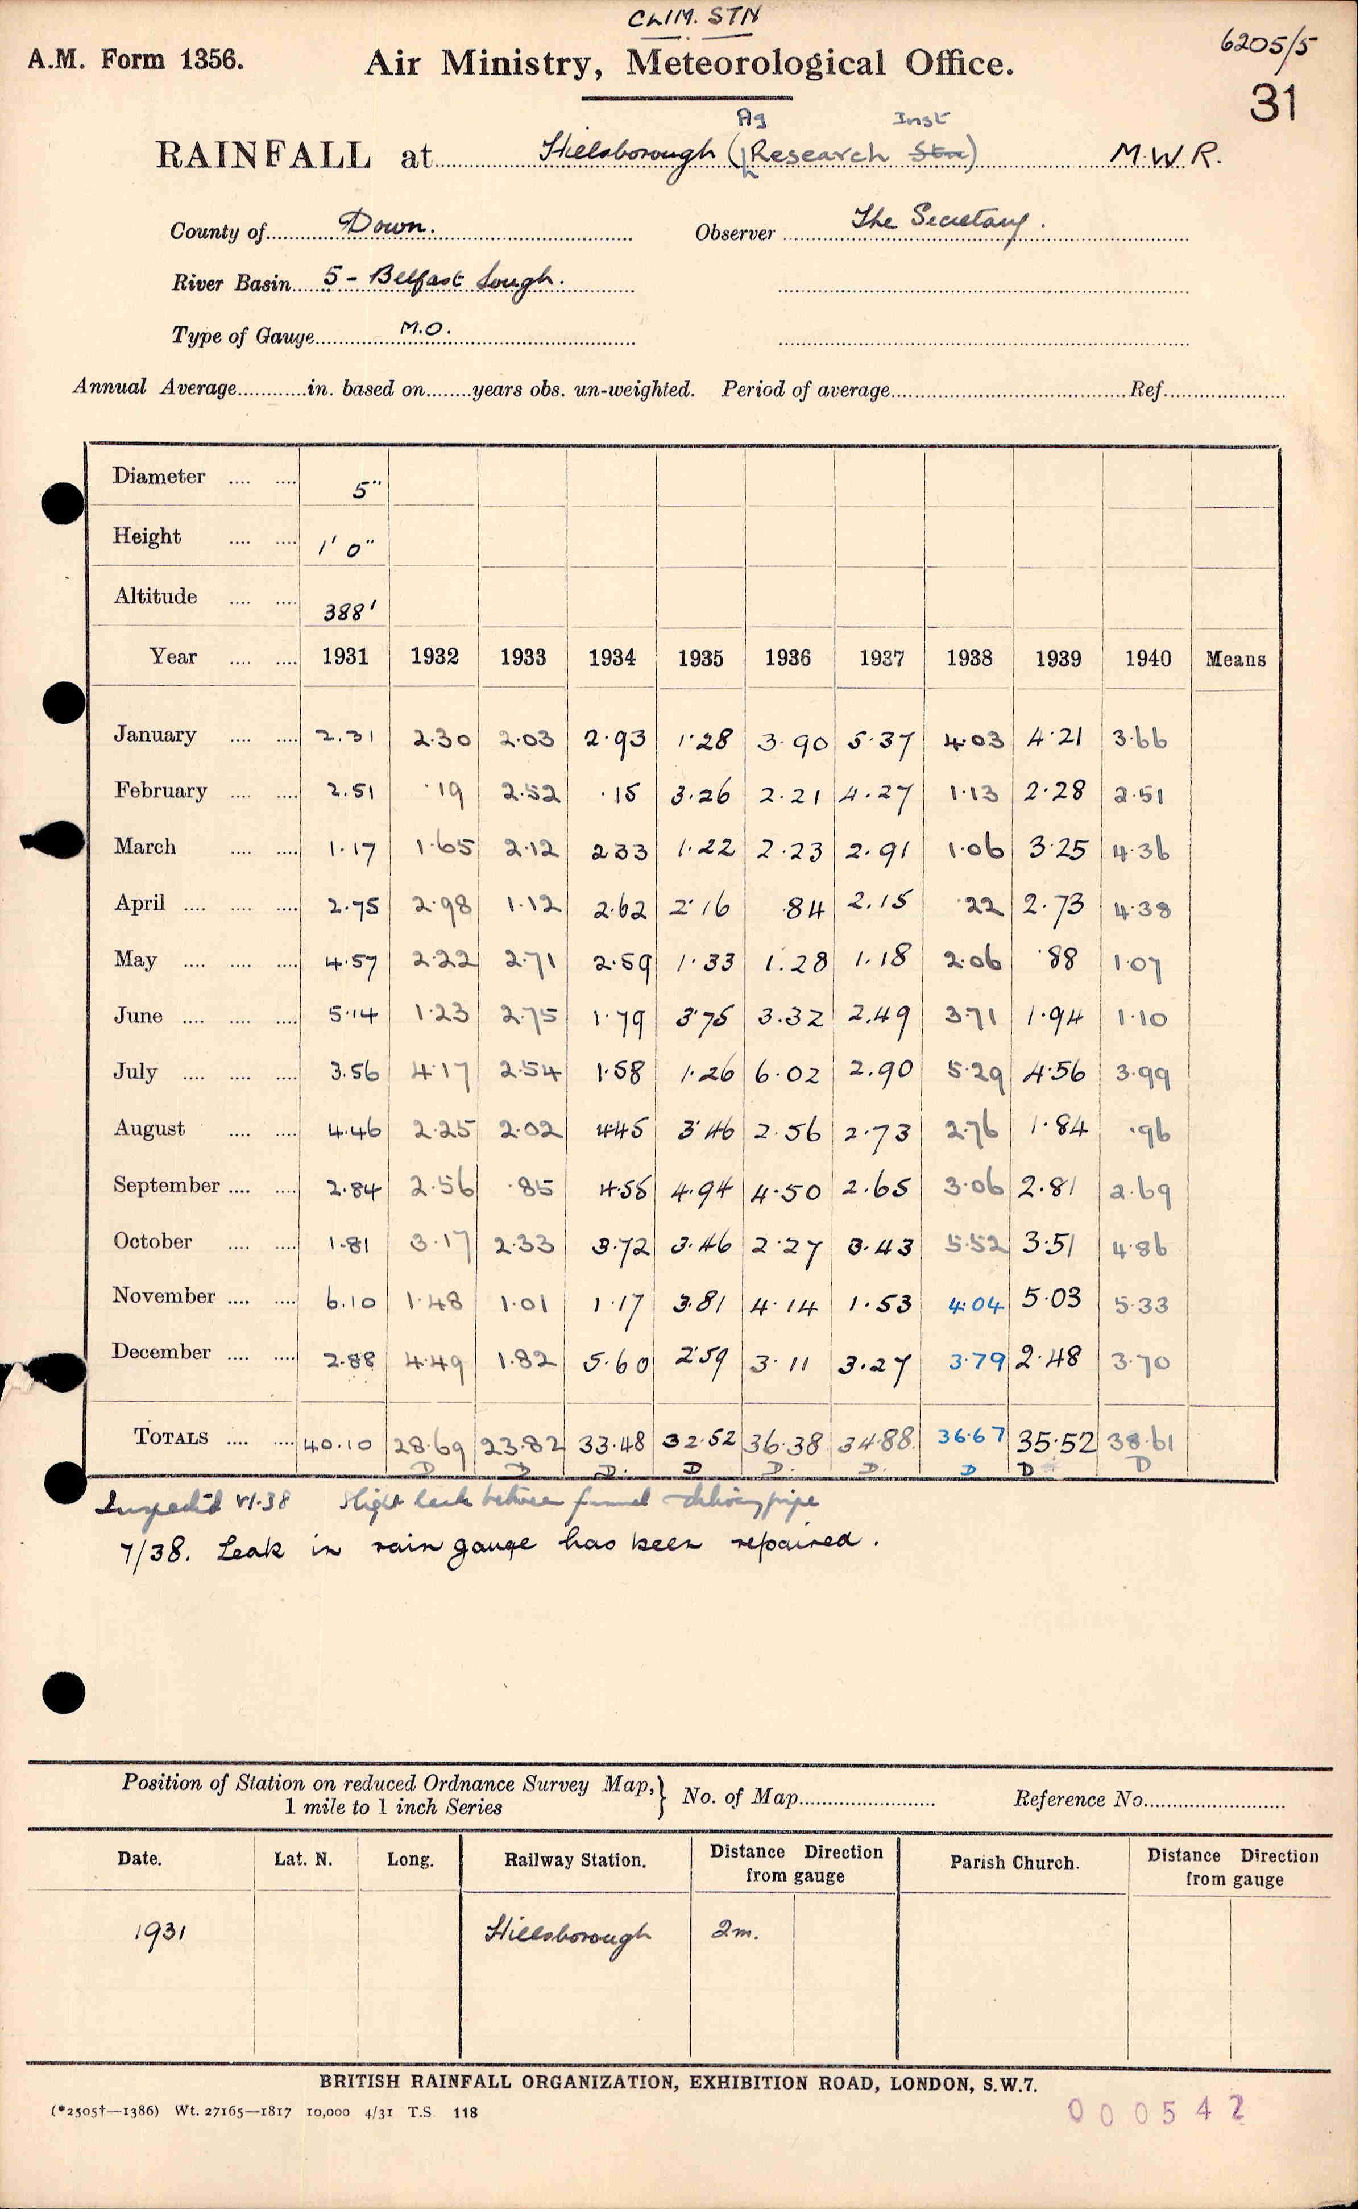 CLIM. STN
A.M. Form 1356. Air Ministry, Meteorological Office. 6205/5
31
Ag Inst
RAINFALL at Hillsborough (Research Stn) M.W.R.
County of Down. Observer The Secretary.
River Basin 5 - Belfast Lough.
Type of Gauge M.O.
Annual Average in. based on years obs. un-weighted. Period of average Ref.
Diameter 5"
Height 1' 0"
Altitude 388'
Year 1931 1932 1933 1934 1935 1936 1937 1938 1939 1940 Means
January 2.31 2.30 2.03 2.93 1.28 3.90 5.37 4.03 4.21 3.66
February 2.51 .19 2.52 .15 3.26 2.21 4.27 1.13 2.28 2.51
March 1.17 1.65 2.12 2.33 1.22 2.23 2.91 1.06 3.25 4.36
April 2.75 2.98 1.12 2.62 2.16 .84 2.15 .22 2.73 4.38
May 4.57 2.22 2.71 2.59 1.33 1.28 1.18 2.06 .88 1.07
June 5.14 1.23 2.75 1.79 3.75 3.32 2.49 3.71 1.94 1.10
July 3.56 4.17 2.54 1.58 1.26 6.02 2.90 5.29 4.56 3.99
August 4.46 2.25 2.02 4.45 3.46 2.56 2.73 2.76 1.84 .96
September 2.84 2.56 .85 4.55 4.94 4.50 2.65 3.06 2.81 2.69
October 1.81 3.17 2.33 3.72 3.46 2.27 3.43 5.52 3.51 4.86
November 6.10 1.48 1.01 1.17 3.81 4.14 1.53 4.04 5.03 5.33
December 2.88 4.49 1.82 5.60 2.59 3.11 3.27 3.79 2.48 3.70
TOTALS 40.10 28.69 23.82 33.48 32.52 36.38 34.88 36.67 35.52 38.61
D D D. D D. D. D D D
Inspected VI.38 Slight leak between funnel delivery pipe
7/38. Leak in rain gauge has been repaired.
Position of Station on reduced Ordnance Survey Map,} No. of Map Reference No.
1 mile to 1 inch Series
Date. Lat. N. Long. Railway Station. Distance Direction from gauge Parish Church. Distance Direction from gauge
1931 Hillsborough 2m.
BRITISH RAINFALL ORGANIZATION, EXHIBITION ROAD, LONDON, S.W.7.
(*2505†—1386) Wt. 27165—1817 10,000 4/31 T.S. 118
000542